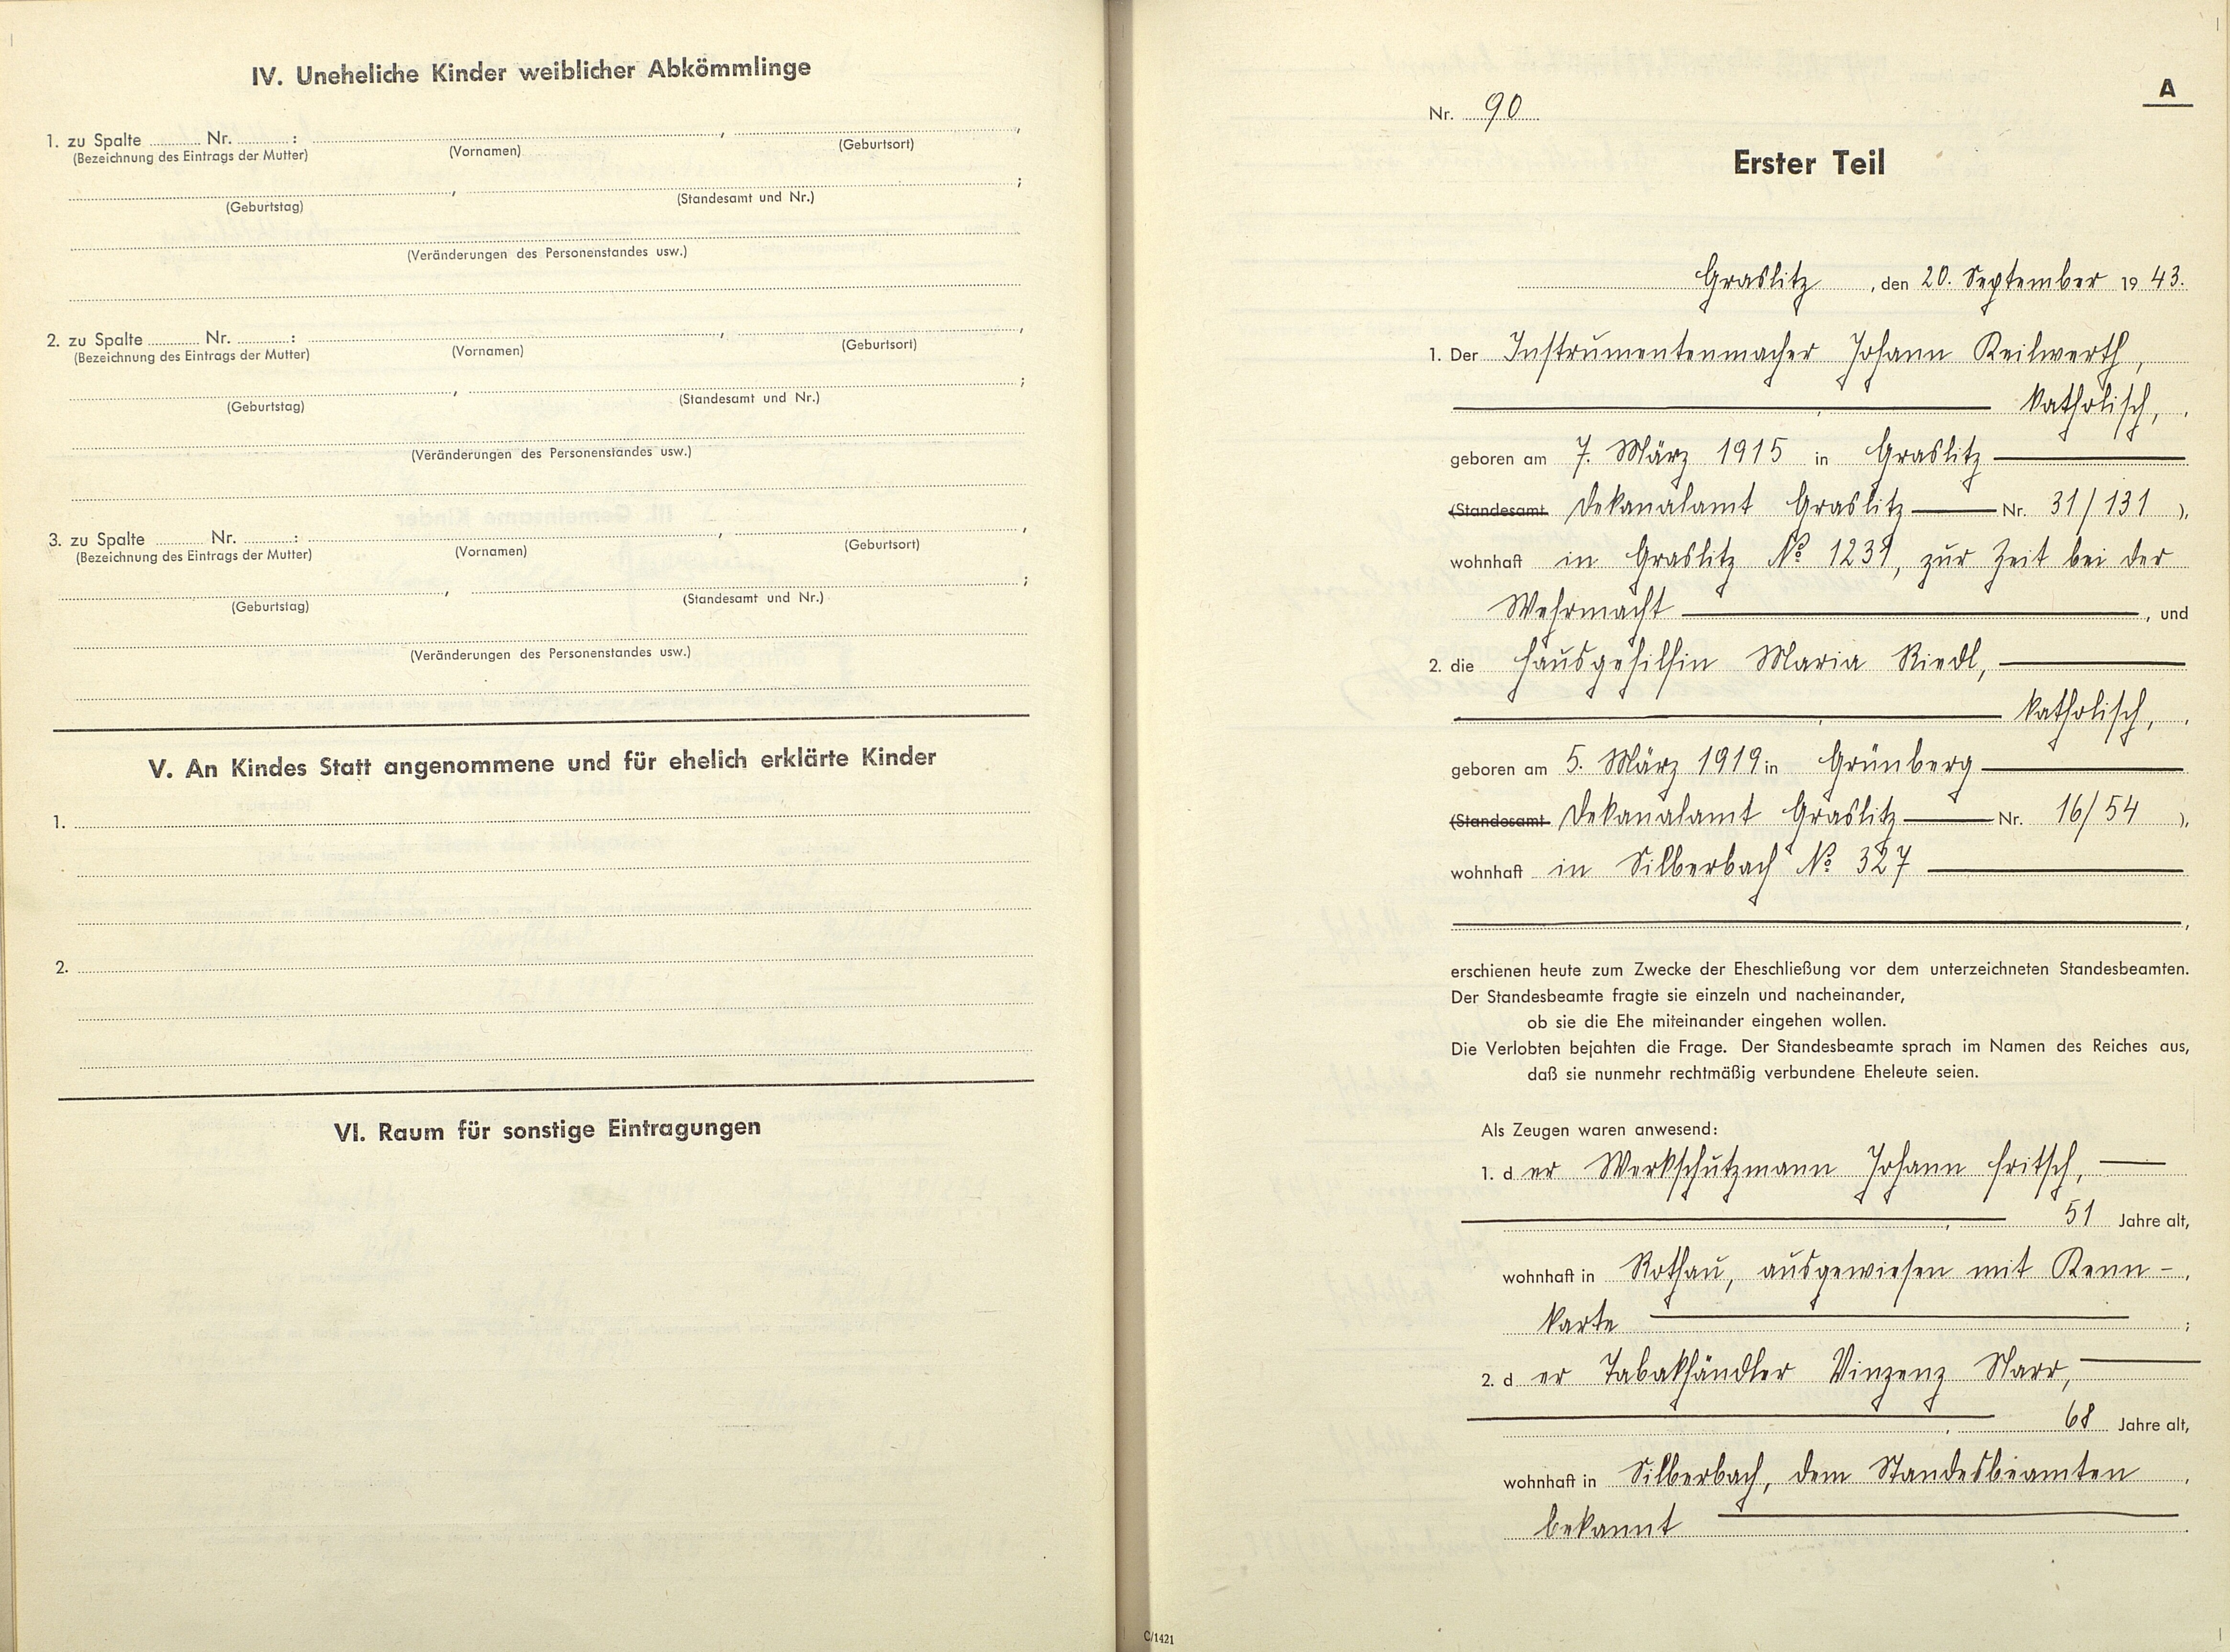 IV. Uneheliche Kinder weiblicher Abkömmlinge
1. zu Spalte ........... Nr. ...........: , ,
(Bezeichnung des Eintrags der Mutter) (Vornamen) (Geburtsort)
, ;
(Geburtstag) (Standesamt und Nr.)
(Veränderungen des Personenstandes usw.)
2. zu Spalte ........... Nr. ...........: , ,
(Bezeichnung des Eintrags der Mutter) (Vornamen) (Geburtsort)
, ;
(Geburtstag) (Standesamt und Nr.)
(Veränderungen des Personenstandes usw.)
3. zu Spalte ........... Nr. ...........: , ,
(Bezeichnung des Eintrags der Mutter) (Vornamen) (Geburtsort)
, ;
(Geburtstag) (Standesamt und Nr.)
(Veränderungen des Personenstandes usw.)
V. An Kindes Statt angenommene und für ehelich erklärte Kinder
1.
2.
VI. Raum für sonstige Eintragungen
A
Nr. 90
Erster Teil
Graslitz, den 20. September 1943.
1. Der Instrumentenmacher Johann Keilwerth,
katholisch,
geboren am 7. März 1915 in Graslitz
(Standesamt Dekanalamt Graslitz Nr. 31/131 ),
wohnhaft in Graslitz No 1239, zur Zeit bei der
Wehrmacht, und
2. die Hausgehilfin Maria Riedl,
katholisch,
geboren am 5. März 1919 in Grünberg
(Standesamt Dekanalamt Graslitz Nr. 16/54 ),
wohnhaft in Silberbach No 327
,
erschienen heute zum Zwecke der Eheschließung vor dem unterzeichneten Standesbeamten.
Der Standesbeamte fragte sie einzeln und nacheinander,
ob sie die Ehe miteinander eingehen wollen.
Die Verlobten bejahten die Frage. Der Standesbeamte sprach im Namen des Reiches aus,
daß sie nunmehr rechtmäßig verbundene Eheleute seien.
Als Zeugen waren anwesend:
1. der Werkschutzmann Johann Fritsch,
51 Jahre alt,
wohnhaft in Rothau, ausgewiesen mit Kenn-
karte ;
2. der Tabakhändler Vinzenz Starr,
68 Jahre alt,
wohnhaft in Silberbach, dem Standesbeamten
bekannt
C/1421